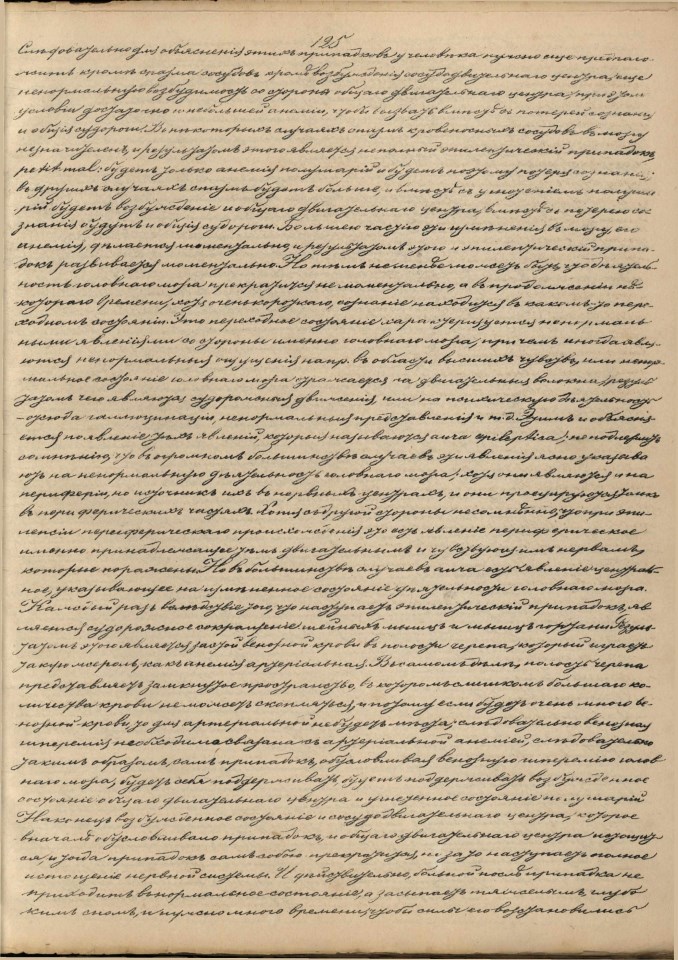 125
Слѣдовательно для объясненія этихъ припадковъ у человѣка нужно еще предполо-
жить кромѣ спазма сосудовъ кромѣ возбужденія сосудодвигательнаго центра, еще
ненормальную возбудимость со стороны общаго двигательнаго центра; при этомъ
условіи достаточно и небольшей анеміи, чтобы вызвать вмѣстѣ съ потерей сознанія
и общія судороги. Въ нѣкоторыхъ случаяхъ спазмъ кровеносныхъ сосудовъ въ мозгу
незначителенъ, и результатомъ этого является неполный эпилептическій припадокъ,
petit mal: будетъ только анемія полушарій и будетъ поэтому потеря сознанія;
въ другихъ случаяхъ спазмъ будетъ больше, и вмѣстѣ съ угнетеніемъ полуша-
рій будетъ возбужденіе и общаго двигательнаго центра, вмѣстѣ съ потерею со-
знанія будутъ и общія судороги. Большею частію эти измѣненія въ мозгу, его
анемія, дѣлается моментально, и результатомъ этого и эпилептическій припа-
докъ развивается моментально. Но тѣмъ не менѣе можетъ быть, что дѣятель-
ность головнаго мозга прекратится не моментально, а въ продолженіи нѣ-
котораго времени, хотя очень короткаго, сознаніе находится въ какомъ-то пере-
ходномъ состояніи. Это переходное состояніе характеризуется ненормаль-
ными явленіями со стороны именно головнаго мозга, при чемъ иногда явля-
ются ненормальныя ощущенія напр. въ области высшихъ чувствъ, или ненор-
мальное состояніе головнаго мозга отражается на двигательныя волокна, резуль-
татомъ чего являются судорожныя движенія, или на психическую дѣятельность
– отсюда галлюцинаціи, ненормальныя представленія и т.д. Этимъ и объясня-
ется появленіе тѣхъ явленій, которыя называются aura epileptica; не подлежитъ
сомнѣнію, что въ огромномъ большинствѣ случаевъ эти явленія ясно указыва-
ютъ на ненормальную дѣятельность головнаго мозга; хотя они являются и на
периферіи, но источникъ ихъ въ нервныхъ центрахъ, и они проецируются только
въ периферическихъ частяхъ. Хотя съ другой стороны несомнѣнно, что при эпи-
лепсіи периферическаго происхожденія это есть явленіе периферическое
именно принадлежащее тѣмъ двигательнымъ и чувствующимъ нервамъ,
которые поражены. Но въ большинствѣ случаевъ aura есть явленіе централь-
ное, указывающее на измѣненное состояніе дѣятельности головнаго мозга.
Каждый разъ вслѣдствіе того, что наступаетъ эпилептическій припадокъ, яв-
ляется судорожное сокращеніе шейныхъ мышцъ и мышцъ гортани. Резуль-
татомъ этого является застой венозной крови въ полости черепа, который играетъ
такую же роль, какъ анемія артеріальная. Въ самомъ дѣлѣ, полость черепа
представляетъ замкнутое пространство, въ которомъ слишкомъ большаго ко-
личества крови не можетъ скопляться, и потому если будетъ очень много ве-
нозной крови, то для артеріальной не будетъ мѣста; слѣдовательно венозная
гиперемія необходимо связана съ артеріальной анеміей, слѣдовательно
такимъ образомъ, самъ припадокъ, обусловливая венозную гиперемію голов-
наго мозга, будетъ себя поддерживать, будетъ поддерживать возбужденное
состояніе общаго двигательнаго центра и угнетенное состояніе полушарій
Наконецъ возбужденное состояніе и сосудодвигательнаго центра, которое
вначалѣ обусловливало припадокъ, и общаго двигательнаго центра истощит-
ся и тогда припадокъ самъ собою прекратится, но за то наступаетъ полное
истощеніе нервной системы. И дѣйствительно, больной послѣ припадка не
приходитъ въ нормальное состояніе, а засыпаетъ тяжелымъ глубо-
кимъ сномъ, и нужно много времени, чтобы силы его возстановились